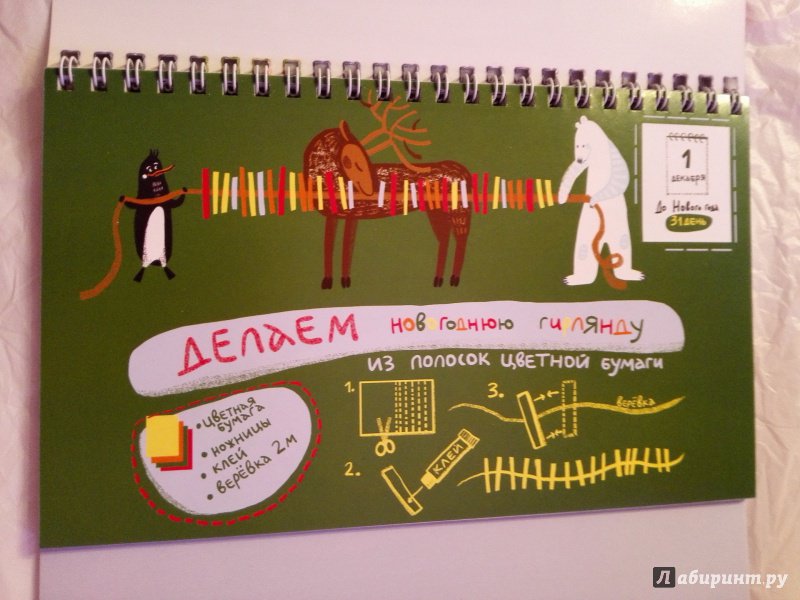 1
декабря
До Нового года
31 день
ДЕЛАЕМ новогоднюю гирлянду
из полосок цветной бумаги
• цветная
бумага
• ножницы
• клей
• верёвка 2 м
1.
2.
КЛЕЙ
3.
верёвка
Лабиринт.ру